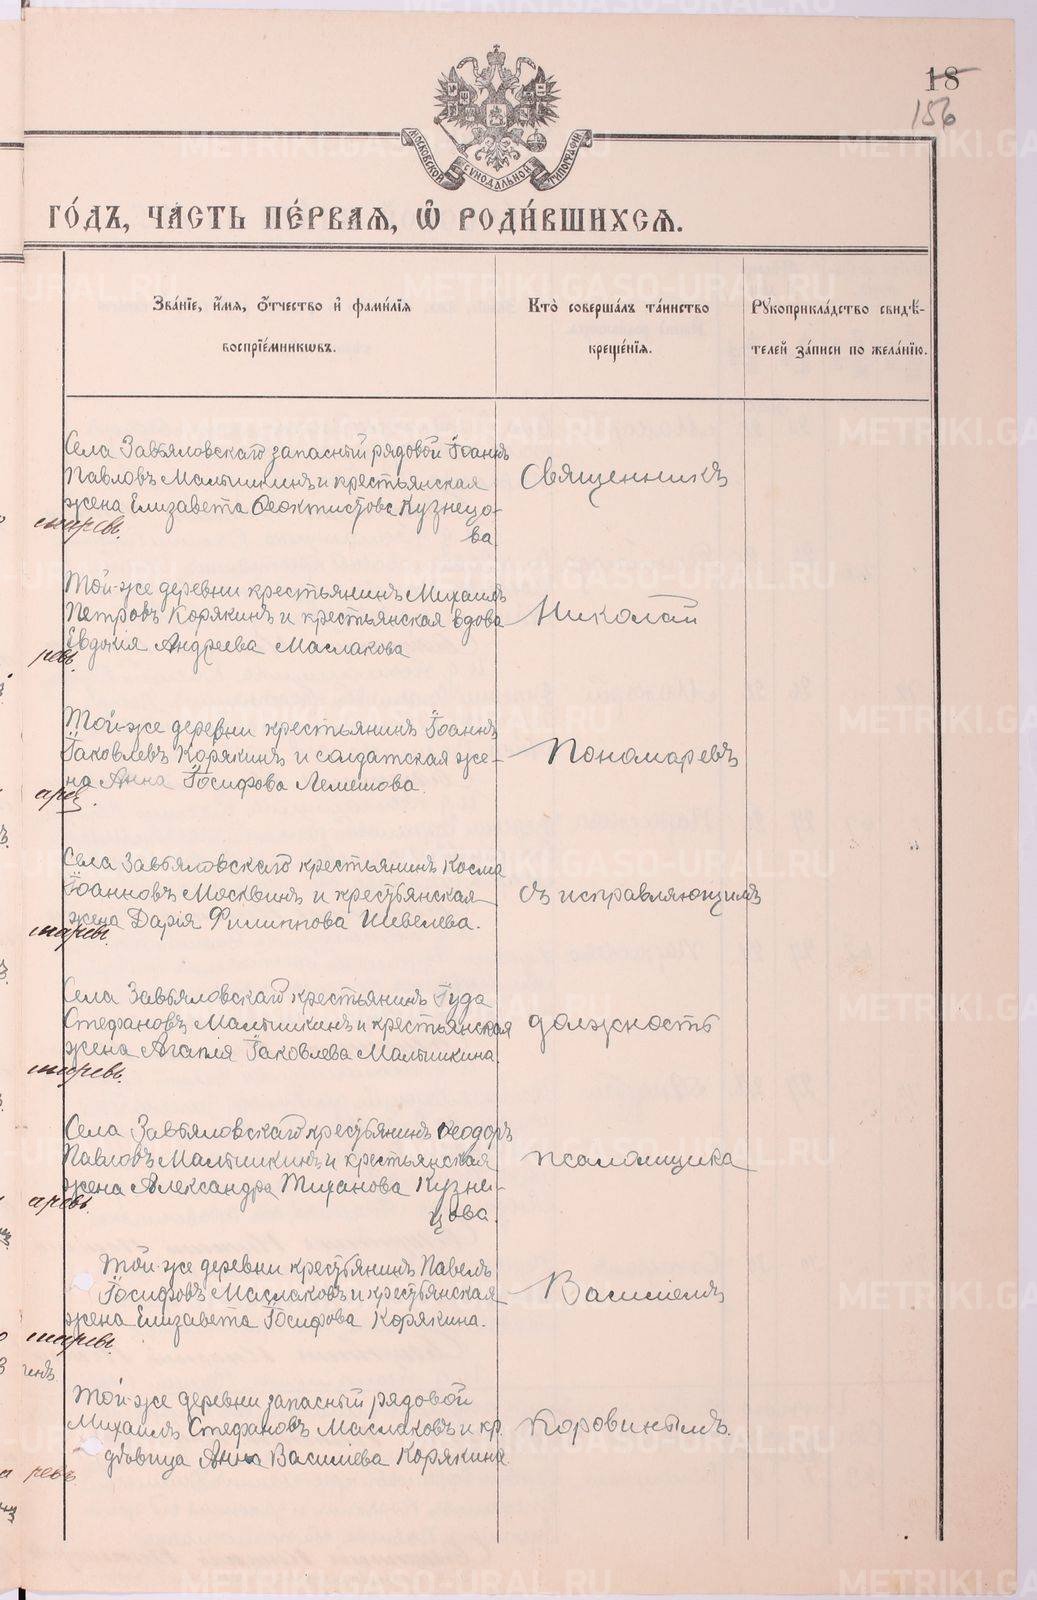 18
156
МОСКОВСКОЙ СѴНОДАЛЬНОЙ ТИПОГРАФІИ
ГО́ДЪ, ЧА́СТЬ ПЕ́РВАѦ, Ѽ РОДИ́ВШИХСѦ.
Зва́нїе, и҆́мѧ, ѻ҆́тчество и҆ фами́лїѧ
воспрїе́мниковъ.
Кто̀ соверша́лъ та́инство
креще́нїѧ.
Рꙋкоприкла́дство свидѣ́-
телей за́писи по жела́нїю.
Села Завьяловскаго запасный рядовой Іоаннъ
Павловъ Малышкинъ и крестьянская
жена Елизавета Ѳеоктистова Кузнецо-
ва
Священникъ
Той-же деревни крестьянинъ Михаилъ
Петровъ Корякинъ и крестьянская вдова
Евдокия Андреева Маслакова
Николай
Той-же деревни крестьянинъ Іоаннъ
Іаковлевъ Корякинъ и солдатская же-
на Анна Іосифова Лемешова.
Пономаревъ
Села Завьяловскаго крестьянинъ Косма
Іоанновъ Москвинъ и крестьянская
жена Дарія Филиппова Шевелева.
съ исправляющимъ
Села Завьяловскаго крестьянинъ Іуда
Стефановъ Малышкинъ и крестьянская
жена Агапія Іаковлева Малышкина.
должность
Села Завьяловскаго крестьянинъ Ѳеодоръ
Павловъ Малышкинъ и крестьянская
жена Александра Тиханова Кузне-
цова.
псаломщика
Той-же деревни крестьянинъ Павелъ
Іосифовъ Маслаковъ и крестьянская
жена Елизавета Іосифова Корякина.
Василіемъ
Той-же деревни запасный рядовой
Михаилъ Стефановъ Маслаковъ и кр.
дѣвица Анна Василіева Корякина
Коровинымъ.
METRIKI.GASO-URAL.RU